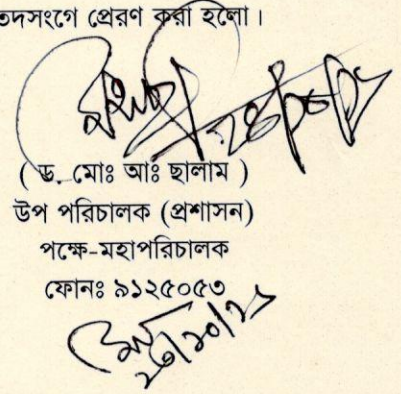 তদসংগে প্রেরণ করা হলো।
( ড. মোঃ আঃ ছালাম )
উপ পরিচালক (প্রশাসন)
পক্ষে-মহাপরিচালক
ফোনঃ ৯১২৫০৫৩